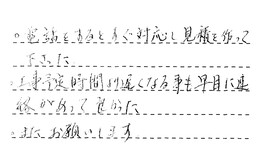 。電話をするとすぐ対応し見積を作って
下さった
。工事予定時間より遅くなる事も早目に連
絡があって良かった
。またお願いします